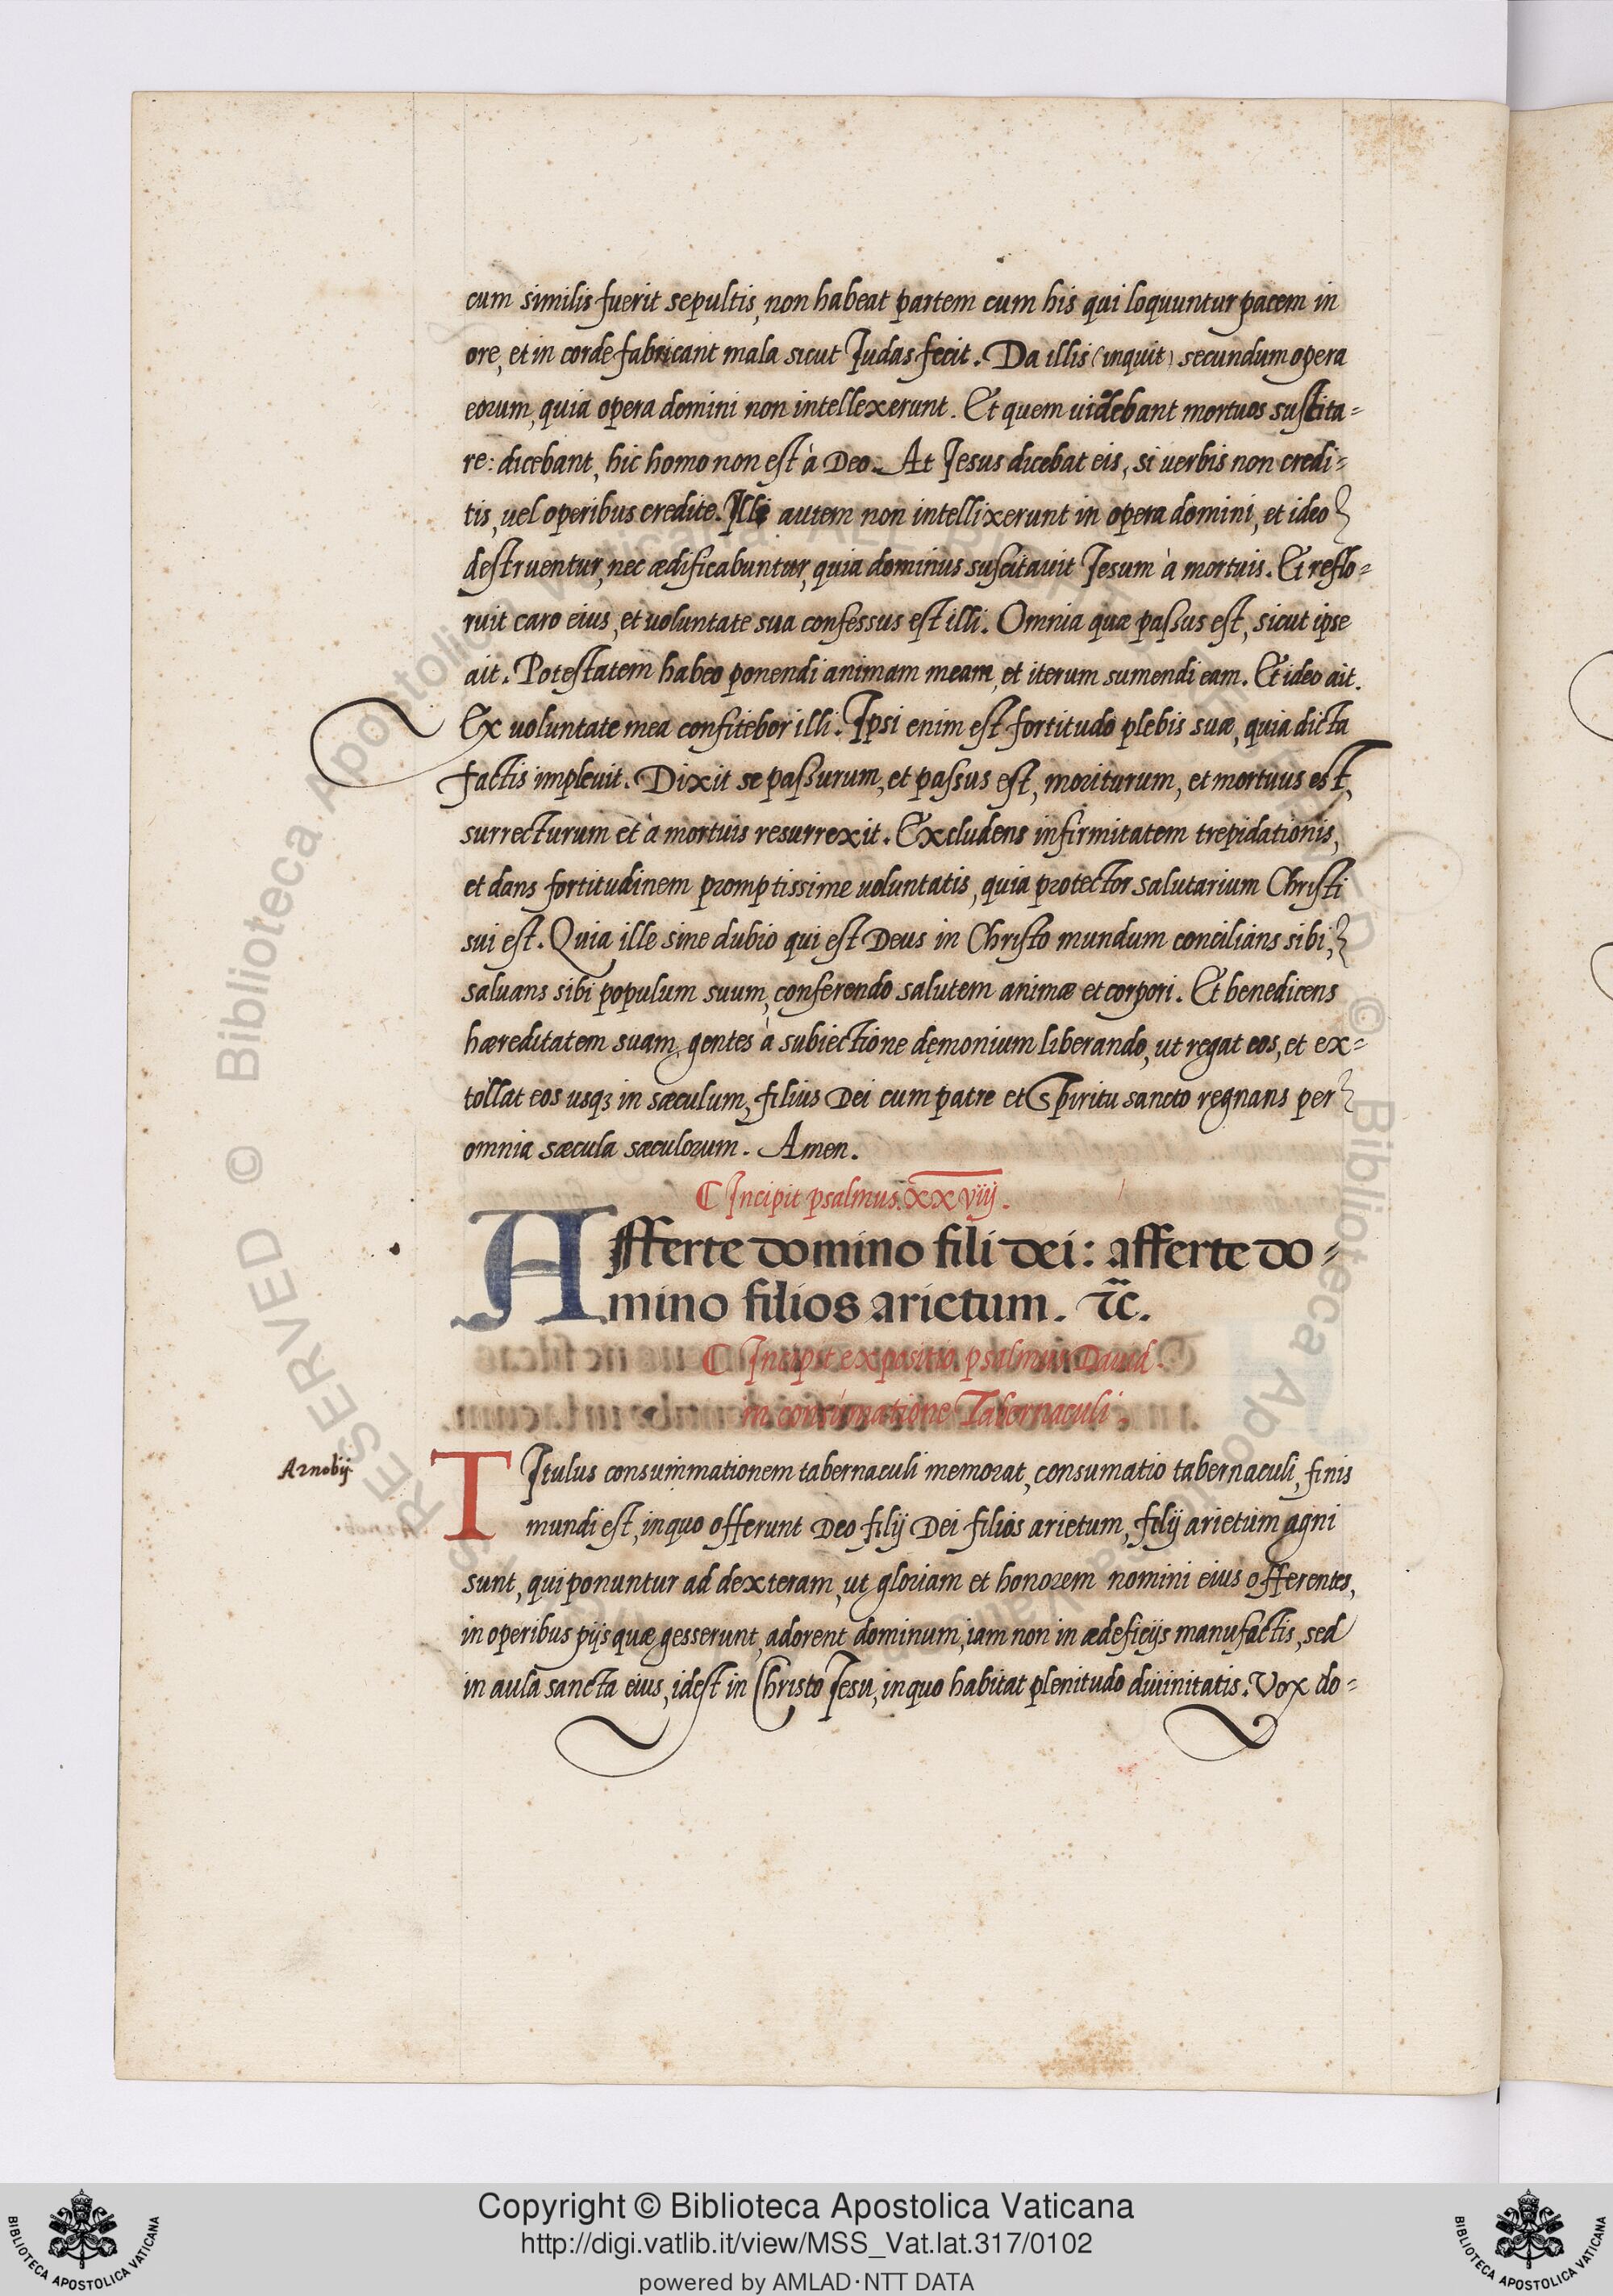 cum similis fuerit sepultis, non habeat partem cum his qui loquuntur pacem in
ore, et in corde fabricant mala sicut Judas fecit. Da illis (inquit) secundum opera
eorum, quia opera domini non intellexerunt. Et quem uidebant mortuos suscita=
re: dicebant, hic homo non est à Deo. At Jesus dicebat eis, si uerbis non credi=
tis, uel operibus credite. Illi autem non intellixerunt in opera domini, et ideo
destruentur, nec ædificabuntur, quia dominus suscitauit Jesum à mortuis. Et reflo=
ruit caro eius, et uoluntate sua confessus est illi. Omnia quæ passus est, sicut ipse
ait. Potestatem habeo ponendi animam meam, et iterum sumendi eam. Et ideo ait.
Ex uoluntate mea confitebor illi. Ipsi enim est fortitudo plebis suæ, quia dicta
factis impleuit. Dixit se passurum, et passus est, moriturum, et mortuus est,
surrecturum et à mortuis resurrexit. Excludens infirmitatem trepidationis,
et dans fortitudinem promptissime uoluntatis, quia protector salutarium Christi
sui est. Quia ille sine dubio qui est Deus in Christo mundum concilians sibi,
saluans sibi populum suum, conferendo salutem animæ et corpori. Et benedicens
hæreditatem suam, gentes à subiectione dęmonium liberando, ut regat eos, et ex=
tollat eos usqȝ in sæculum, filius Dei cum patre et Spiritu sancto regnans per
omnia sæcula sæculorum. Amen.
Incipit psalmus. xxviij.
Afferte domino fili dei: afferte do=
mino filios arietum. &c.
Incipit expositio psalmus Dauid.
in consumatione Tabernaculi.
Arnobij
TItulus consummationem tabernaculi memorat, consumatio tabernaculi, finis
mundi est, in quo offerunt Deo filij Dei filios arietum, filij arietum agni
sunt, qui ponuntur ad dexteram, ut gloriam et honorem nomini eius offerentes,
in operibus pijs quæ gesserunt, adorent dominum, iam non in ædeficijs manufactis, sed
in aula sancta eius, idest in Christo Jesu, in quo habitat plenitudo diuinitatis. Vox do=
Copyright © Biblioteca Apostolica Vaticana
http://digi.vatlib.it/view/MSS_Vat.lat.317/0102
powered by AMLAD·NTT DATA
BIBLIOTECA APOSTOLICA VATICANA
BIBLIOTECA APOSTOLICA VATICANA